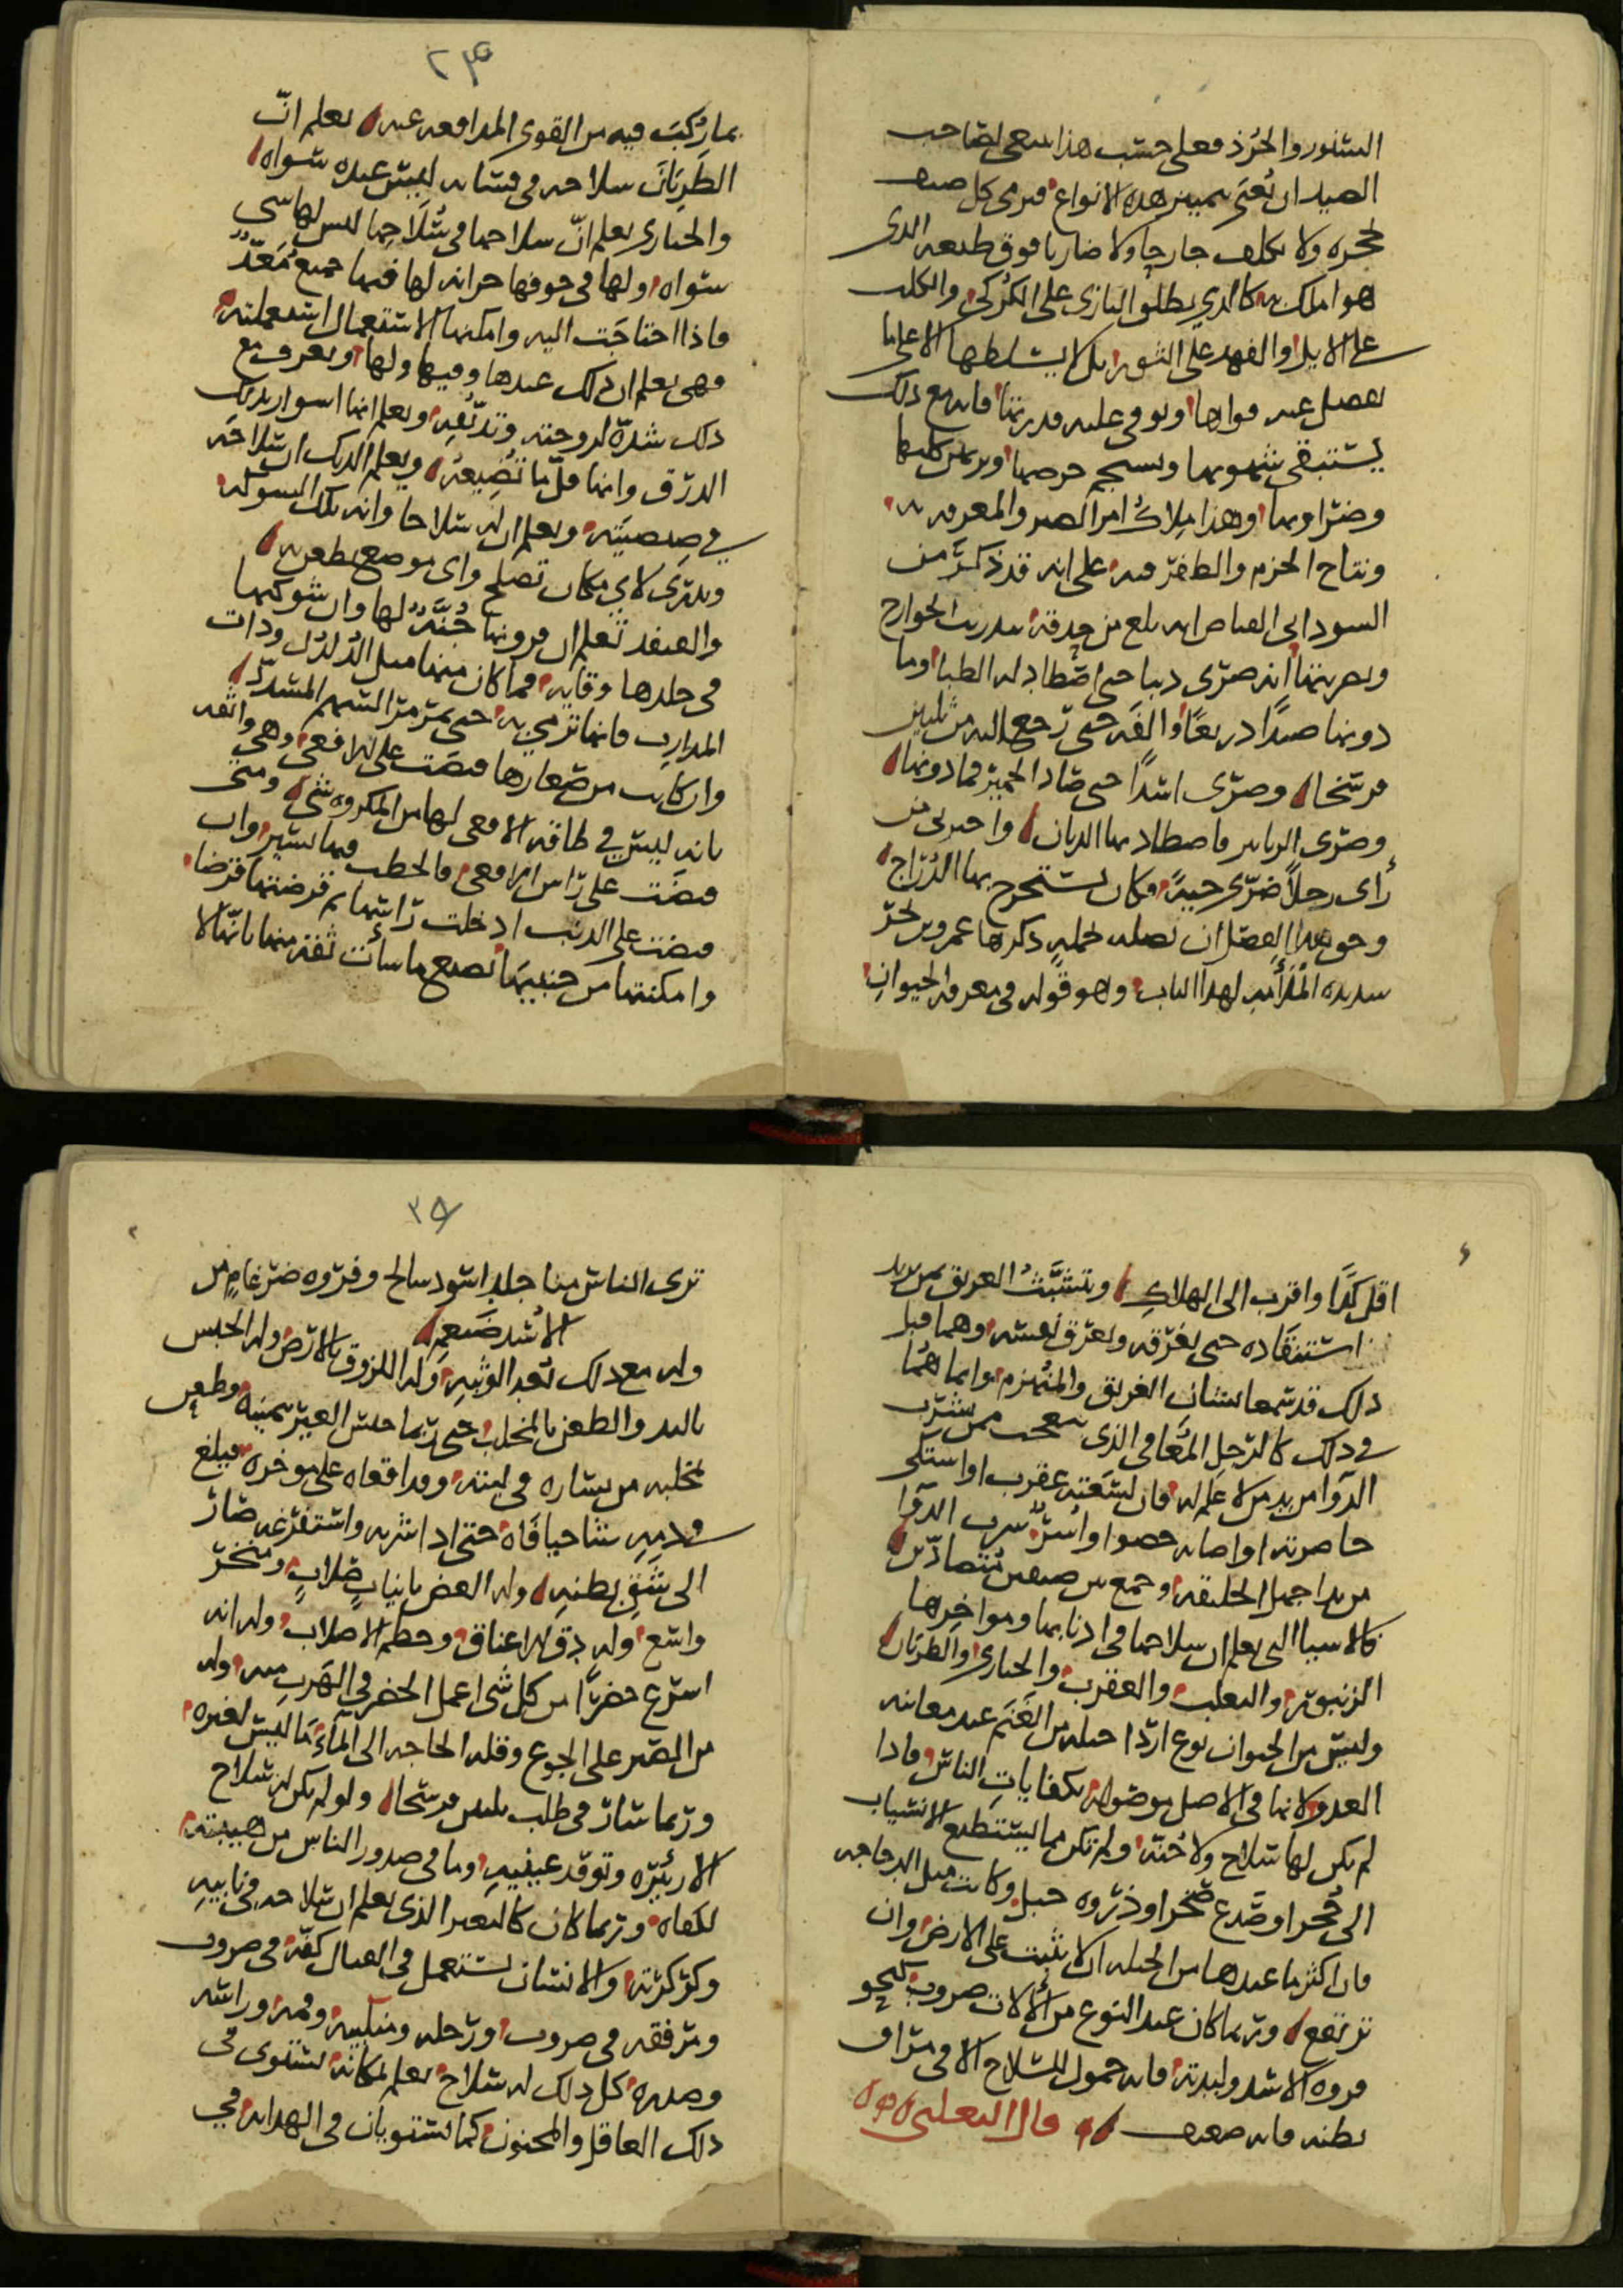 السنور والجرذ فعلى حسب هذا ينبغي لصاحب
الصيد ان يُعنَى بتمييز هذه الانواع فيرمى كل صنف
بحجره ولا يكلف جارحا ولا ضاريا فوق طبعه الذي
هو املك به كالذي يطلق البازي على الكركي والكلب
على الايل والفهد على الثور بل لا يسلطها الا على ما
يفضل عنه قواها ويوفي عليه قدرتها فانه مع ذلك
يستبقي شهوتها ويستجم حرصها
وضراوتها وهذا ملاك امر الصيد والمعرفة به
ونتاج الحزم والظفر فيه على انه قد ذكر عن
السوداني القناص انه بلغ من حذقه بتدريب الجوارح
وتضريتها انه ضرى ذيبا حتى اصطاد له الظبا وما
دونها صيدا ذريعًا والفه حتى رجع اليه من ثلثين
فرسخا وضرى اسدًا حتى صاد الحمير فما دونها
وضرى الزنابير فاصطاد بها الذبان واخبرني من
رأى رجلاً ضرّى حيةً فكان يستخرج بها الدراج
وحق هذا الفصل ان نصله بجملة ذكرها عمرو بن بحر
شديده الملأمة لهذا الباب وهو قوله في معرفة الحيوان
٢٣
بما رُكّبَ فيه من القوى المدافعه عنه يعلم انّ
الظربان سلاحه في فسائه ليس عنده سواه
والحبارى يعلم انّ سلاحها في سُلاحها ليس لها شي
سواه ولها في جوفها خزانه لها فيها جميع مُعَدّ
فاذا احتاجت اليه وامكنها الاستعمال استعملته
وهي يعلم ان ذلك عندها وفيها ولها ويعرف مع
ذلك شدّة لزوجته وتدبُّقه ويعلم انها اسوا بذلك
الذرق وانها قلّ ما تُضيعه ويعلم الديك ان سلاحه
في صيصيَته ويعلم ان له سلاحا وانه تلك الشوكه
ويدرى لاي مكان تصلح واي موضع يطعن به
والقنفد تعلم ان فروتها جُنّة لها وان شوكها
في جلدها وقايه فما كان منها مثل الدُلدُل وذات
المدارِب فانها ترمي به حتى يمر مر السهم المسدّد
وان كانت من صغارها قبضت على الافعى وهي واثقه
بانه ليس في طاقة الافعى لها من المكروه شي ومتى
قبضت على راس الافعى فالخطب فيها يسير وان
قبضت على الذنب ادخلت راسها ثم قرضتها قرضا
وامكنتها من جنبيها تصنع ما سأت ثقة منها بانها لا
اقل كدًّا واقرب الى الهلاك ويتشبَّثُ الغريق بمن يريد
استنقاده حتى يغرقه ويغرق نفسه وهما قبل
ذلك قد سمعا بشان الغريق والمُنهزم وانما هُما
في ذلك كالرجل المعافي الذي يتعجب ممن شرب
الدوا من يد من لا علم له فان لسعته عقرب او اشتكى
خاصرته او اصابه حصر او اسر شرب الدوا
من يد اجهل الخليقه وجمع بين صفتين متضادّتين
كالاشيا التي يعلم ان سلاحها في اذنابها ومواخرها
الزنبور والثعلب والعقرب والحبارى والظربان
وليس من الحيوان نوع اردا حيله من الغنم عند معاينه
العدو لانها في الاصل موصوله بكفايات الناس فاذا
لم يكن لها سلاح ولا جُنّه ولم تكن مما يستطيع الانسياب
الى جُحر او صدع صخر او ذروه جبل وكانت مثل الدجاجه
فان اكثر ما عندها من الحيله ان لا تثبت على الارض وان
ترتفع وربما كان عند النوع من الألات ضروب كنحو
فروه الاسد ولبدته فانه حمول للسلاح الا في مراق
بطنه فانه ضعيف قال التغلبى
٣٥
ترى الناس منا جلد اسود سالخ وفروه ضرغام من
الاُسد ضيغم
وله مع ذلك بُعد الوثبه وله اللزوق بالارض وله الحبس
باليد والطعن بالمخلب حتى ربما حبس العير بيمينه وطعن
بمخلبه من يساره في لبته وقد اقعاه على موخره فيبلغ
ودميه شاحيا فاه حتى اذا شربه واستفرغه صار
الى شقّ بطنه وله العض بانياب صلاب ومنخر
واسع وله دق الاعناق وحطم الاصلاب وله انه
اسرع حضرا من كل شي اعمل الحضر في الهرب منه وله
من الصبر على الجوع وقله الحاجه الى المآء ما ليس لغيره
وربما سار في طلب ثلثين فرسخا ولو لم يكن له سلاح
الا زئيره وتوقد عينيه وما في صدور الناس من هيبته
لكفاه وربما كان كالبعير الذي يعلم ان سلاحه في نابيه
وكركرته والانسان يستعمل في القتال كفّه في ضروب
ومرفقه في ضروب ورجله ومنكبيه وفمه وراسه
وصدره كل ذلك له سلاح يعلم مكانه يستوي في
ذلك العاقل والمجنون كما يستويان في الهدايه في